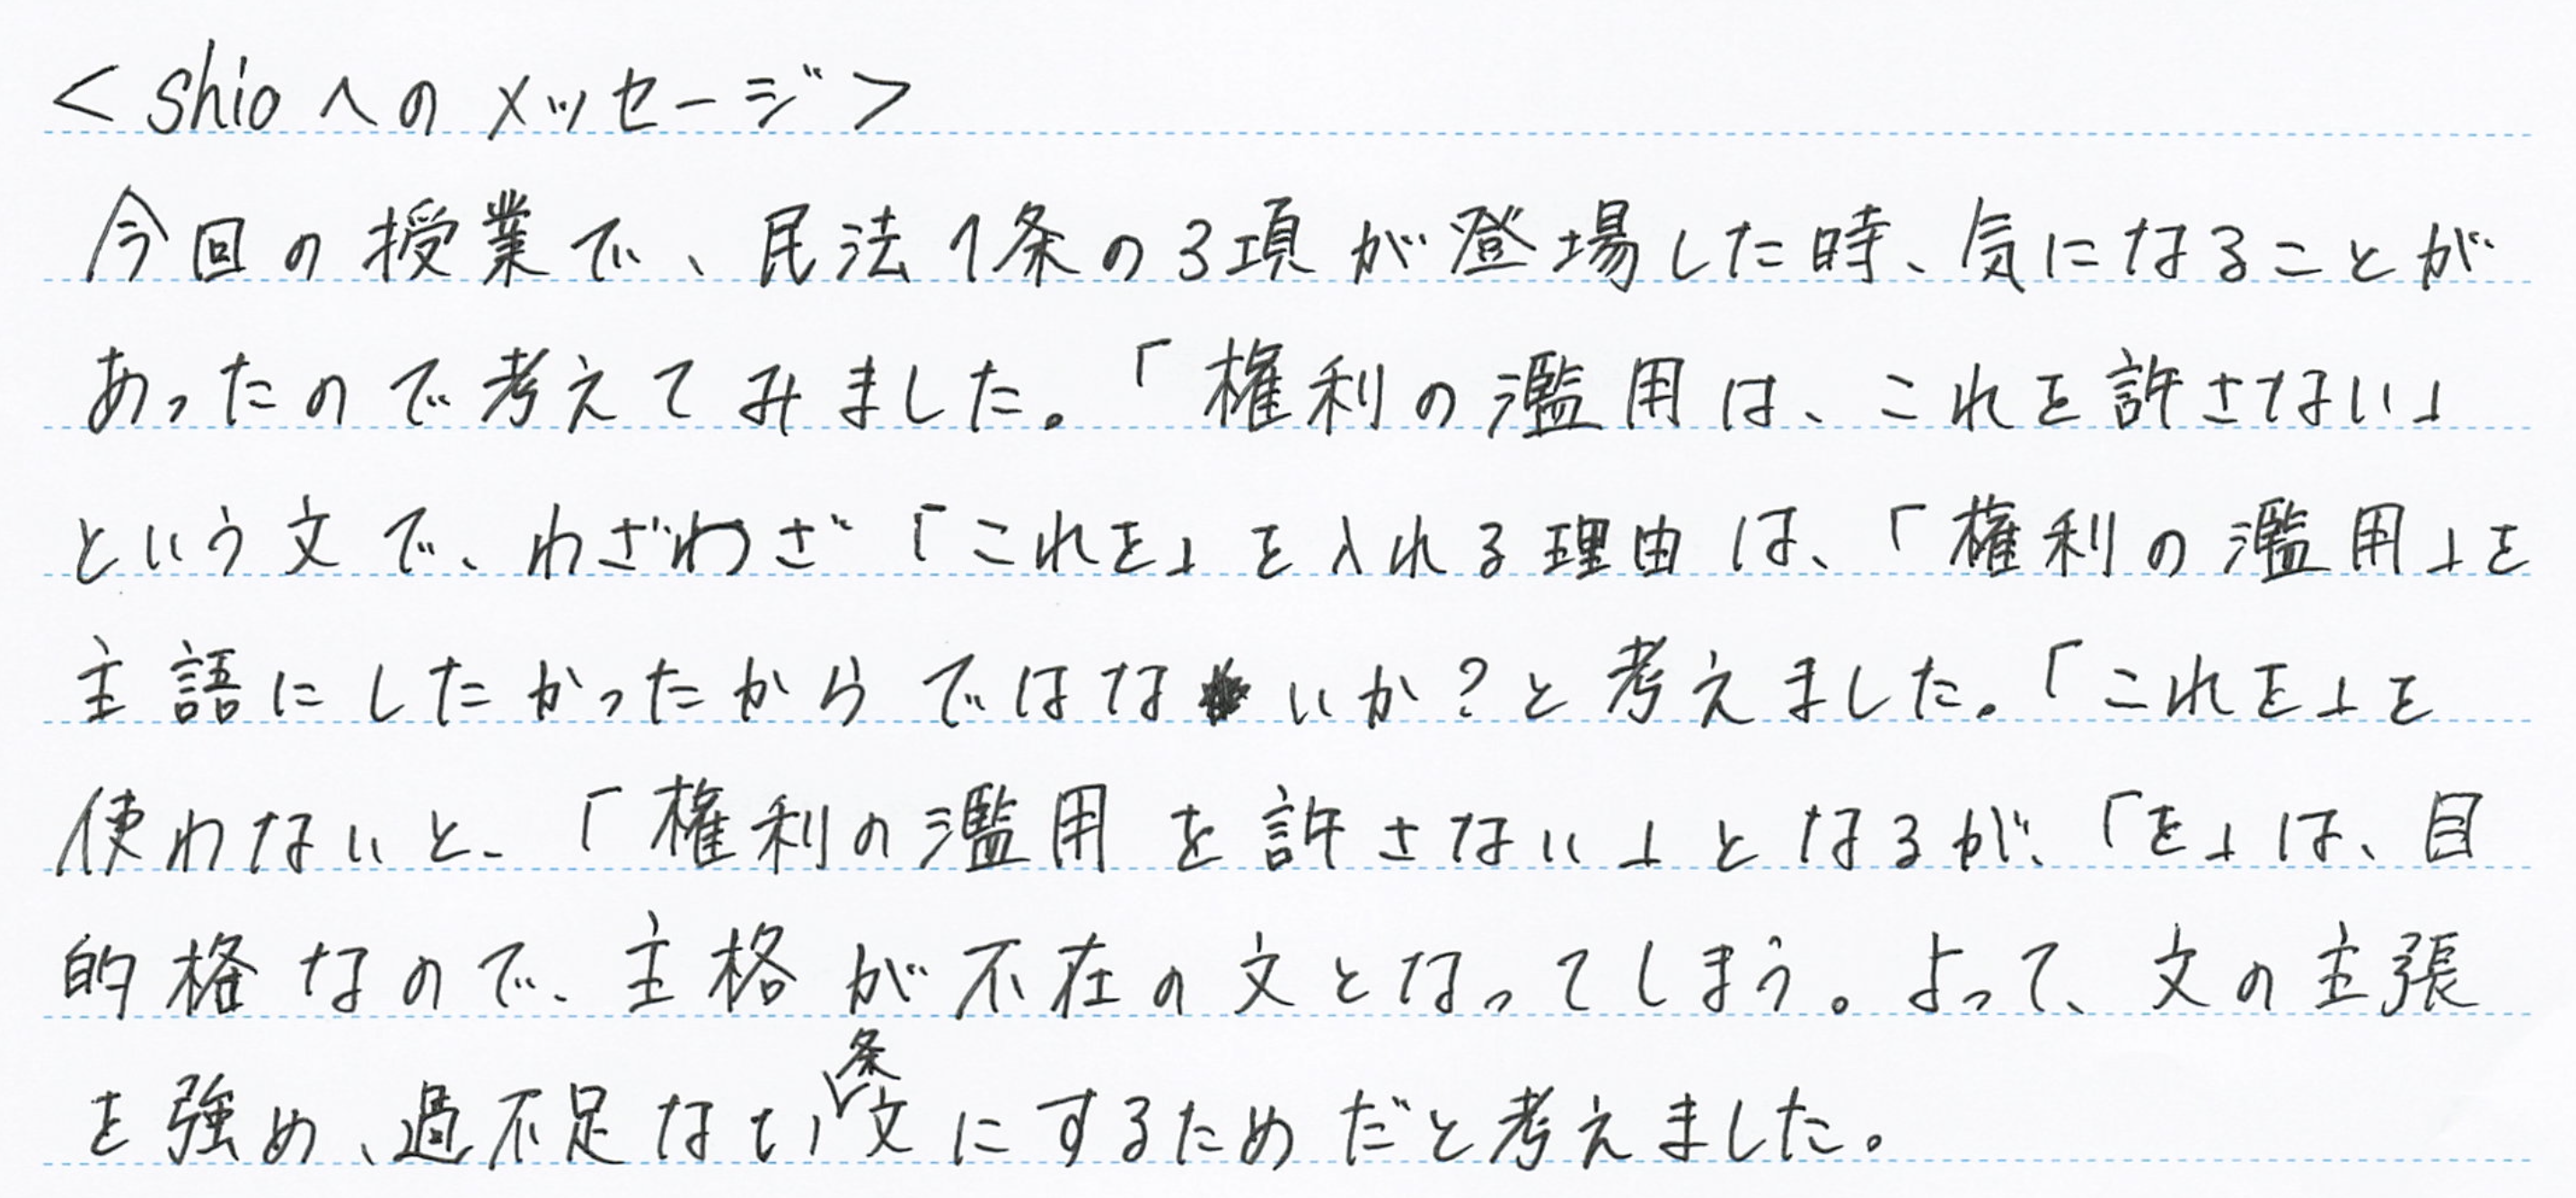 ＜shioへのメッセージ＞
今回の授業で、民法1条の3項が登場した時、気になることが
あったので考えてみました。「権利の濫用は、これを許さない」
という文で、わざわざ「これを」を入れる理由は、「権利の濫用」を
主語にしたかったからではないか？と考えました。「これを」を
使わないと、「権利の濫用を許さない」となるが、「を」は、目
的格なので、主格が不在の文となってしまう。よって、文の主張
を強め、過不足ない条文にするためだと考えました。